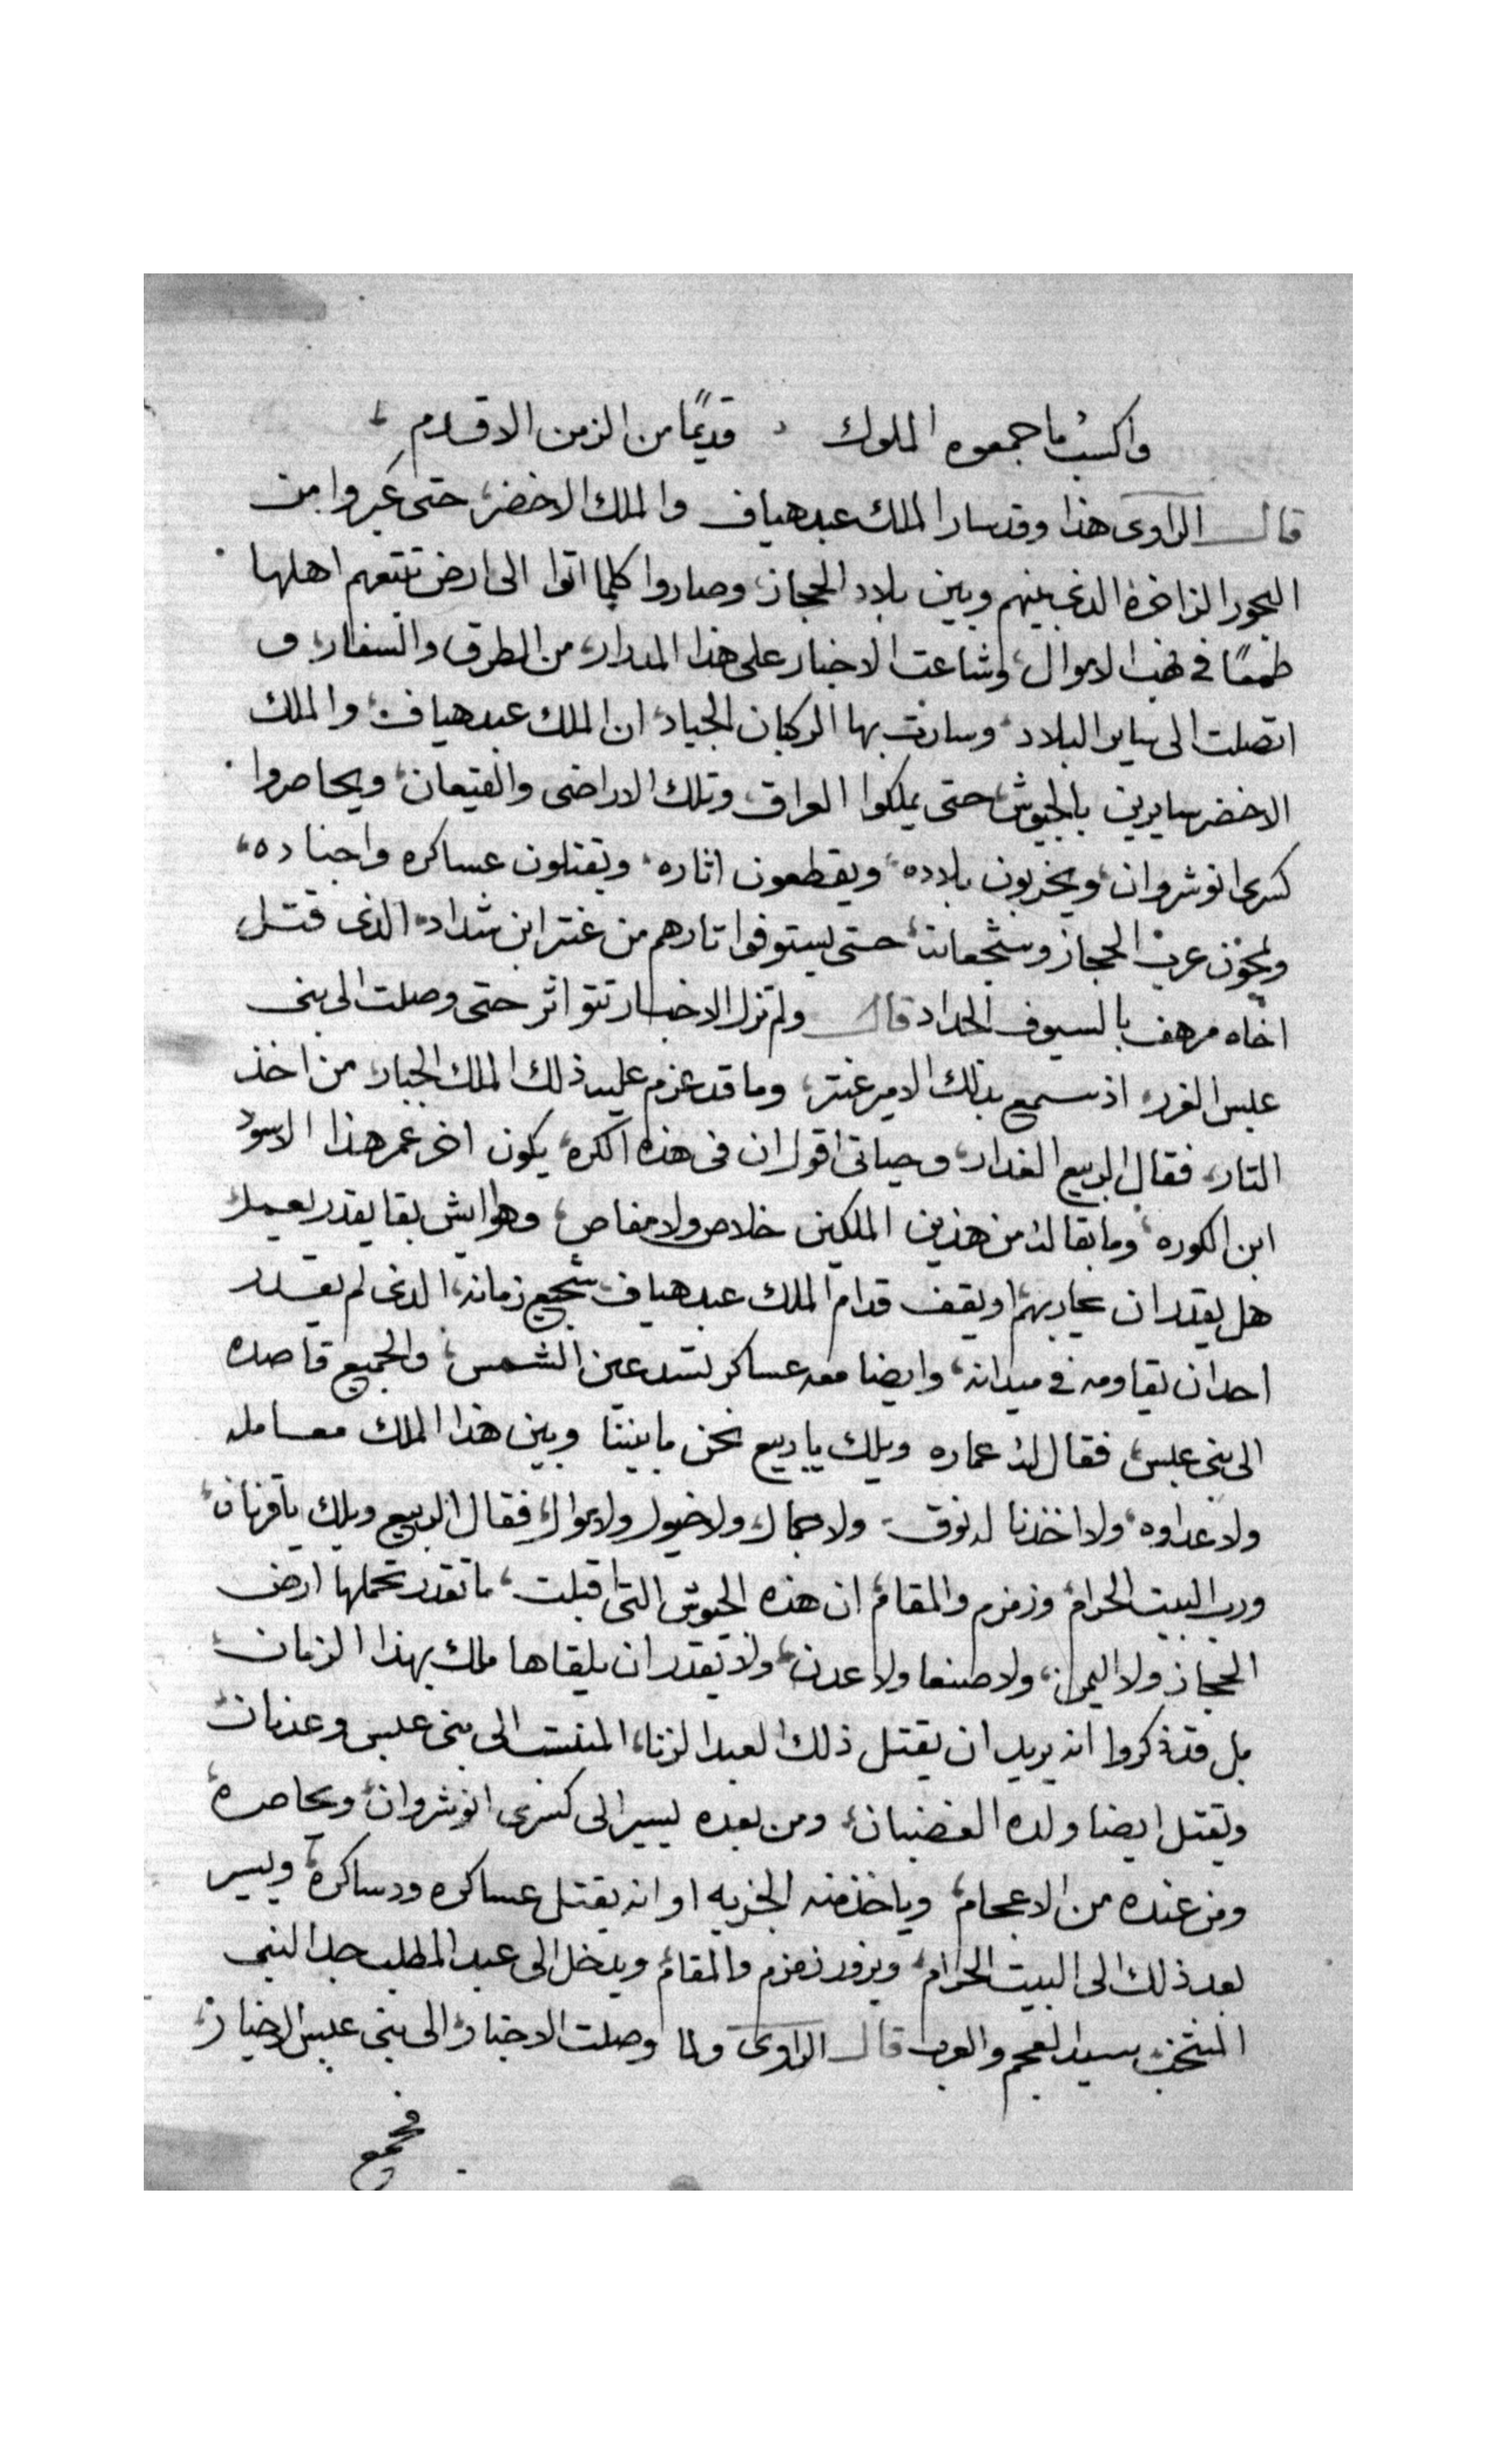 واكسب ما جمعوه الملوك قديمًا من الزمن الاقدم
قال الراوى هذا وقد سار الملك عبد هياف والملك الاخضر، حتى عبروا من
البحور الزاخرة الذى بينهم وبين بلاد الحجاز، وصاروا كلما اتوا الى ارض تتبعهم اهلها
طمعًا فى نهب الاموال، وشاعت الاخبار على هذا المدار، من الطرق والسفار، و
اتصلت الى ساير البلاد، وسارت بها الركبان الجياد، ان الملك عبد هياف، والملك
الاخضر سايرين بالجيوش، حتى يملكوا العراق، وتلك الاراضى والقيعان، ويحاصروا
كسرى انوشروان، ويخربون بلاده، ويقطعون اثاره، ويقتلون عساكره واجناده،
ويمحون عرب الحجاز وشجعانه، حتى يستوفوا تارهم من عنتر ابن شداد، الذى قتل
اخاه مرهف بالسيوف الحداد قال ولم تزل الاخبار تتواتر حتى وصلت الى بنى
عبس الغرر، اذ سمع بذلك الامير عنتر، وما قد عزم عليه ذلك الملك الجبار، من اخذ
التار، فقال الربيع الغدار، وحياتى اقول ان فى هذه الكره، يكون اخر عمر هذا الاسود
ابن الكوره، وما بقا له من هذين الملكين خلاص ولا مفاص، وهو ايش بقا يقدر يعمل
هل يقدر ان يحاربهم او يقف قدام الملك عبد هياف، شجيع زمانه، الذى لم يقدر
احد ان يقاومه فى ميدانه، وايضا معه عساكر تسد عين الشمس، والجميع قاصده
الى بنى عبس، فقال له عماره ويلك يا ربيع نحن ما بيننا وبين هذا الملك معامله
ولا عداوه، ولا اخذنا له نوق، ولا جمال، ولا خيول ولا اموال، فقال الربيع ويلك يا قرنان،
ورب البيت الحرام، وزمزم والمقام، ان هذه الجيوش التى اقبلت، ما تقدر تحملها ارض
الحجاز ولا اليمن، ولا صنعا ولا عدن، ولا يقدر ان يلقاها ملك بهذا الزمان،
بل قد ذكروا انه يريد ان يقتل ذلك العبد الزنا، المنتسب الى بنى عبس وعدنان،
ويقتل ايضا ولده الغضبان، ومن بعده يسير الى كسرى انوشروان، ويحاصره،
ومن عنده من الاعجام، وياخذ منه الجزيه او انه يقتل عساكره ودساكره، ويسير
بعد ذلك الى البيت الحرام، ويزور زمزم والمقام، ويدخل الى عبد المطلب جد النبى
المنتخب سيد العجم والعرب قال الراوى ولما وصلت الاخبار، الى بنى عبس الاخيار،
فجمع